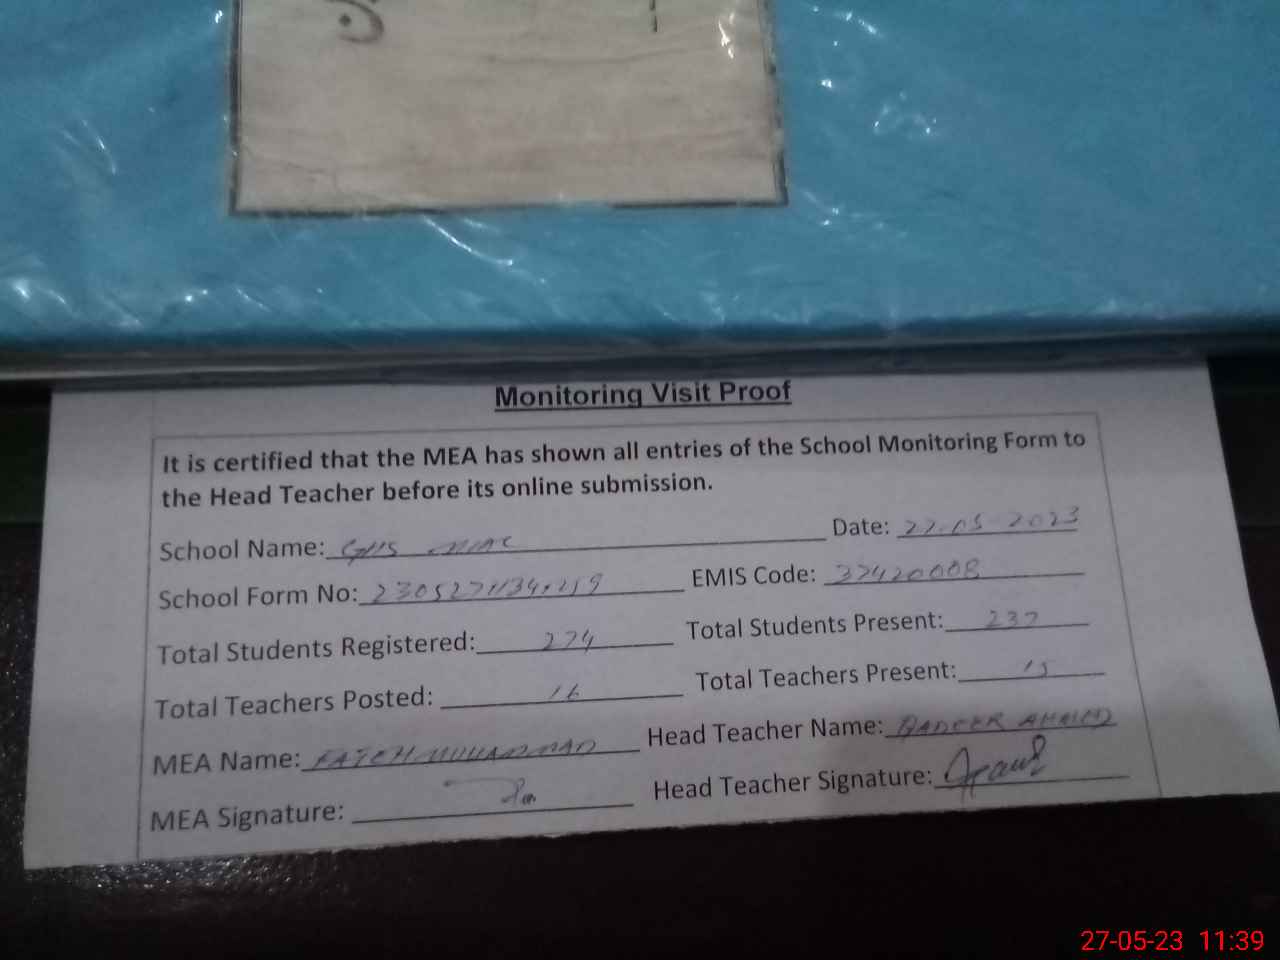 Monitoring Visit Proof
It is certified that the MEA has shown all entries of the School Monitoring Form to
the Head Teacher before its online submission.
School Name: GHS Date: 27.05-2023
School Form No: EMIS Code: 37420008
Total Students Registered: 274 Total Students Present: 237
Total Teachers Posted: 16 Total Teachers Present: 15
MEA Name: FATEH MUHAMMAD Head Teacher Name: AHMED
MEA Signature: Head Teacher Signature:
27-05-23 11:39